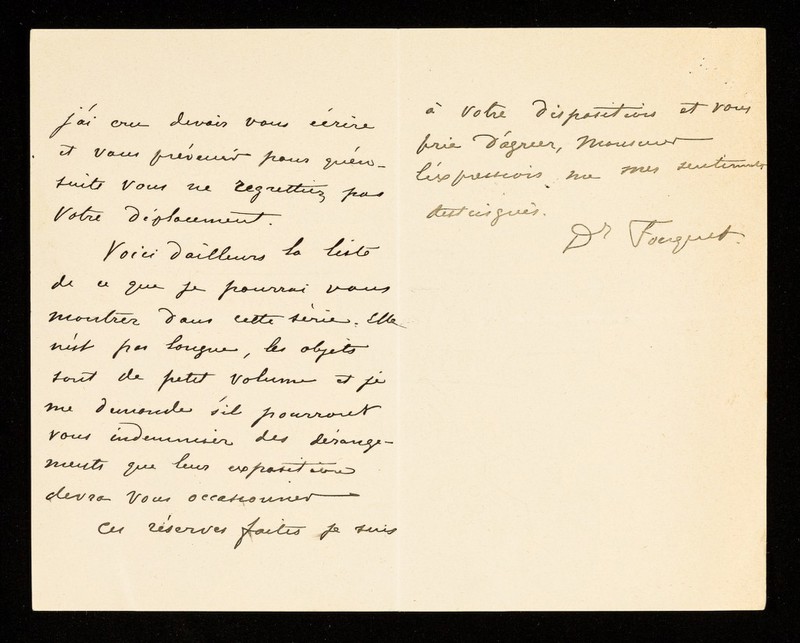 j'ai cru devoir vous écrire
et vous prévenir pour qu'en-
suite vous ne regrettiez pas
votre déplacement.
Voici d'ailleurs la liste
de ce que je pourrai vous
montrer dans cette série. Elle
n'est pas longue, les objets
sont de petit volume et je
me demande s'il pourront
vous indemniser des dérange-
ments que leur exposition
devra vous occasionner
Ces réserves faites je suis
à votre disposition et vous
prie d'agréer, Monsieur
l'expression de mes sentiments
distingués.
Dr Fouquet.